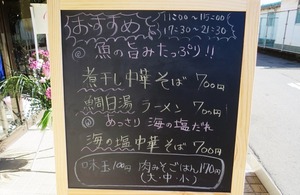 おすすめ
11:00～15:00
17:30～21:30
◎ 魚の旨みたっぷり!!
煮干し中華そば 700円
鯛白湯ラーメン 700円
◎ あっさり 海の塩だれ
海の塩中華そば 700円
味玉100円 肉みそごはん170円
(大・中・小)